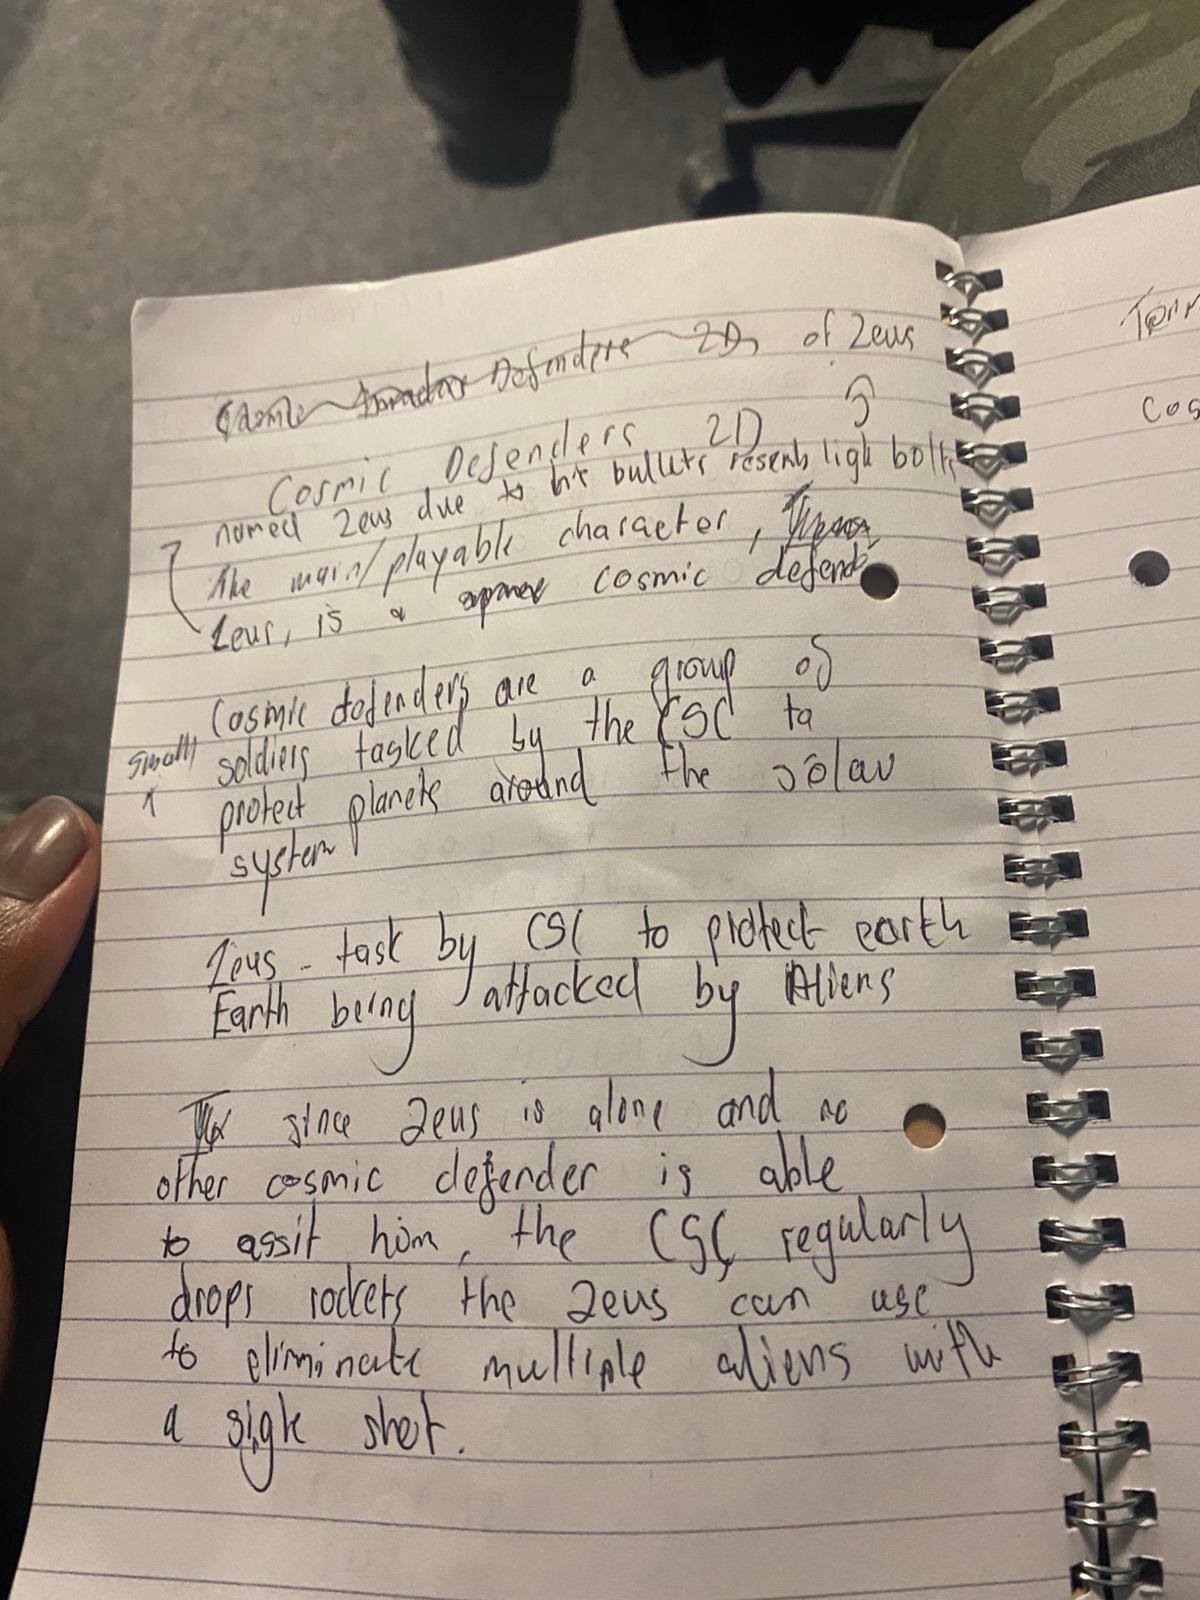 Defenders 2D, of Zeus
Cosmic Defenders 2D
named Zeus due to his bullets resemb ligh bolts
The main/playable character,
Zeus, is a cosmic defende
Cosmic defenders are a group of
small soldiers tasked by the CSC to
protect planets around the solar
system
Zeus - task by CSC to protect earth
Earth being attacked by Aliens
since Zeus is alone and no
other cosmic defender is able
to assit him, the CSC regularly
drops rockets the Zeus can use
to eliminate multiple aliens with
a sigle shot.
Cos